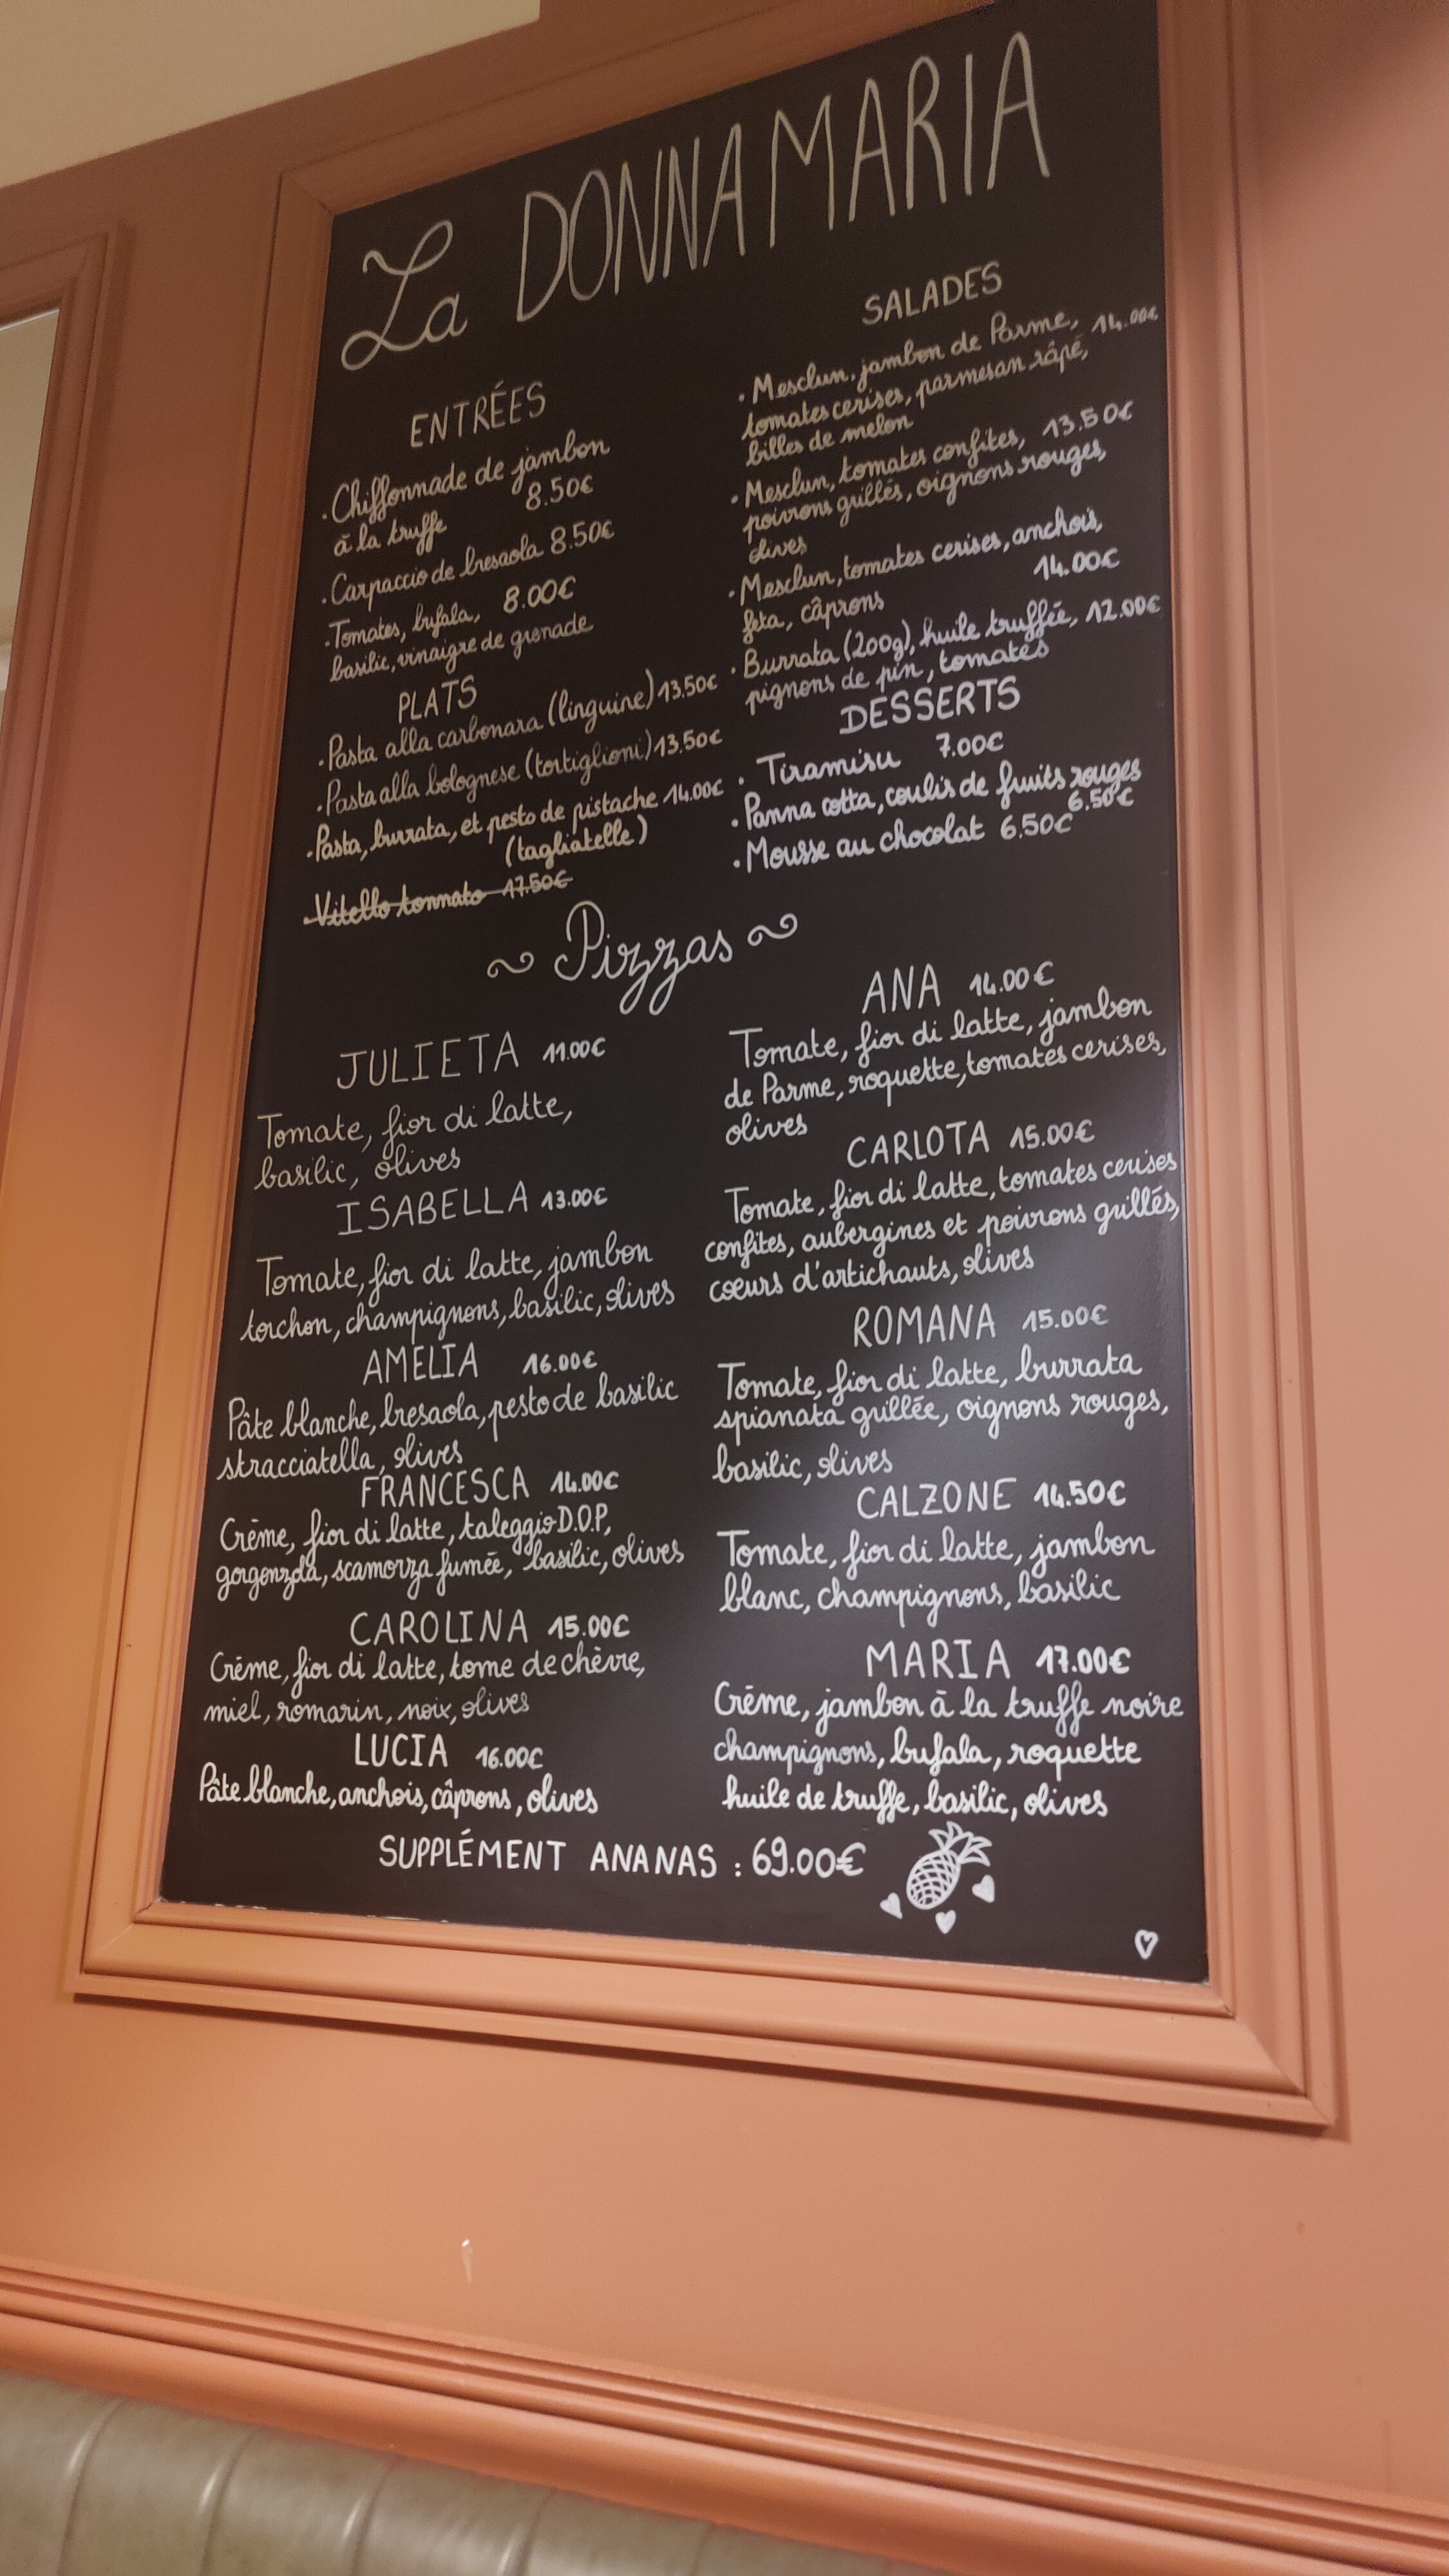 La DONNA MARIA
ENTRÉES
. Chiffonnade de jambon
à la truffe 8.50€
. Carpaccio de bresaola 8.50€
. Tomates, bufala, 8.00€
basilic, vinaigre de grenade
PLATS
. Pasta alla carbonara (linguine) 13.50€
. Pasta alla bolognese (tortiglioni) 13.50€
. Pasta, burrata, et pesto de pistache 14.00€
(tagliatelle)
. Vitello tonnato 17.50€
SALADES
. Mesclun, jambon de Parme, 14.00€
tomates cerises, parmesan râpé,
billes de melon
. Mesclun, tomates confites, 13.50€
poivrons grillés, oignons rouges,
olives
. Mesclun, tomates cerises, anchois,
feta, câprons 14.00€
. Burrata (200g), huile truffée, 12.00€
pignons de pin, tomates
DESSERTS
. Tiramisu 7.00€
. Panna cotta, coulis de fruits rouges
6.50€
. Mousse au chocolat 6.50€
~ Pizzas ~
JULIETA 11.00€
Tomate, fior di latte,
basilic, olives
ISABELLA 13.00€
Tomate, fior di latte, jambon
torchon, champignons, basilic, olives
AMELIA 16.00€
Pâte blanche, bresaola, pesto de basilic
stracciatella, olives
FRANCESCA 14.00€
Crème, fior di latte, taleggio D.O.P,
gorgonzola, scamorza fumée, basilic, olives
CAROLINA 15.00€
Crème, fior di latte, tome de chèvre,
miel, romarin, noix, olives
LUCIA 16.00€
Pâte blanche, anchois, câprons, olives
ANA 14.00€
Tomate, fior di latte, jambon
de Parme, roquette, tomates cerises,
olives
CARLOTA 15.00€
Tomate, fior di latte, tomates cerises
confites, aubergines et poivrons grillés,
cœurs d'artichauts, olives
ROMANA 15.00€
Tomate, fior di latte, burrata
spianata grillée, oignons rouges,
basilic, olives
CALZONE 14.50€
Tomate, fior di latte, jambon
blanc, champignons, basilic
MARIA 17.00€
Crème, jambon à la truffe noire
champignons, bufala, roquette
huile de truffe, basilic, olives
SUPPLÉMENT ANANAS : 69.00€